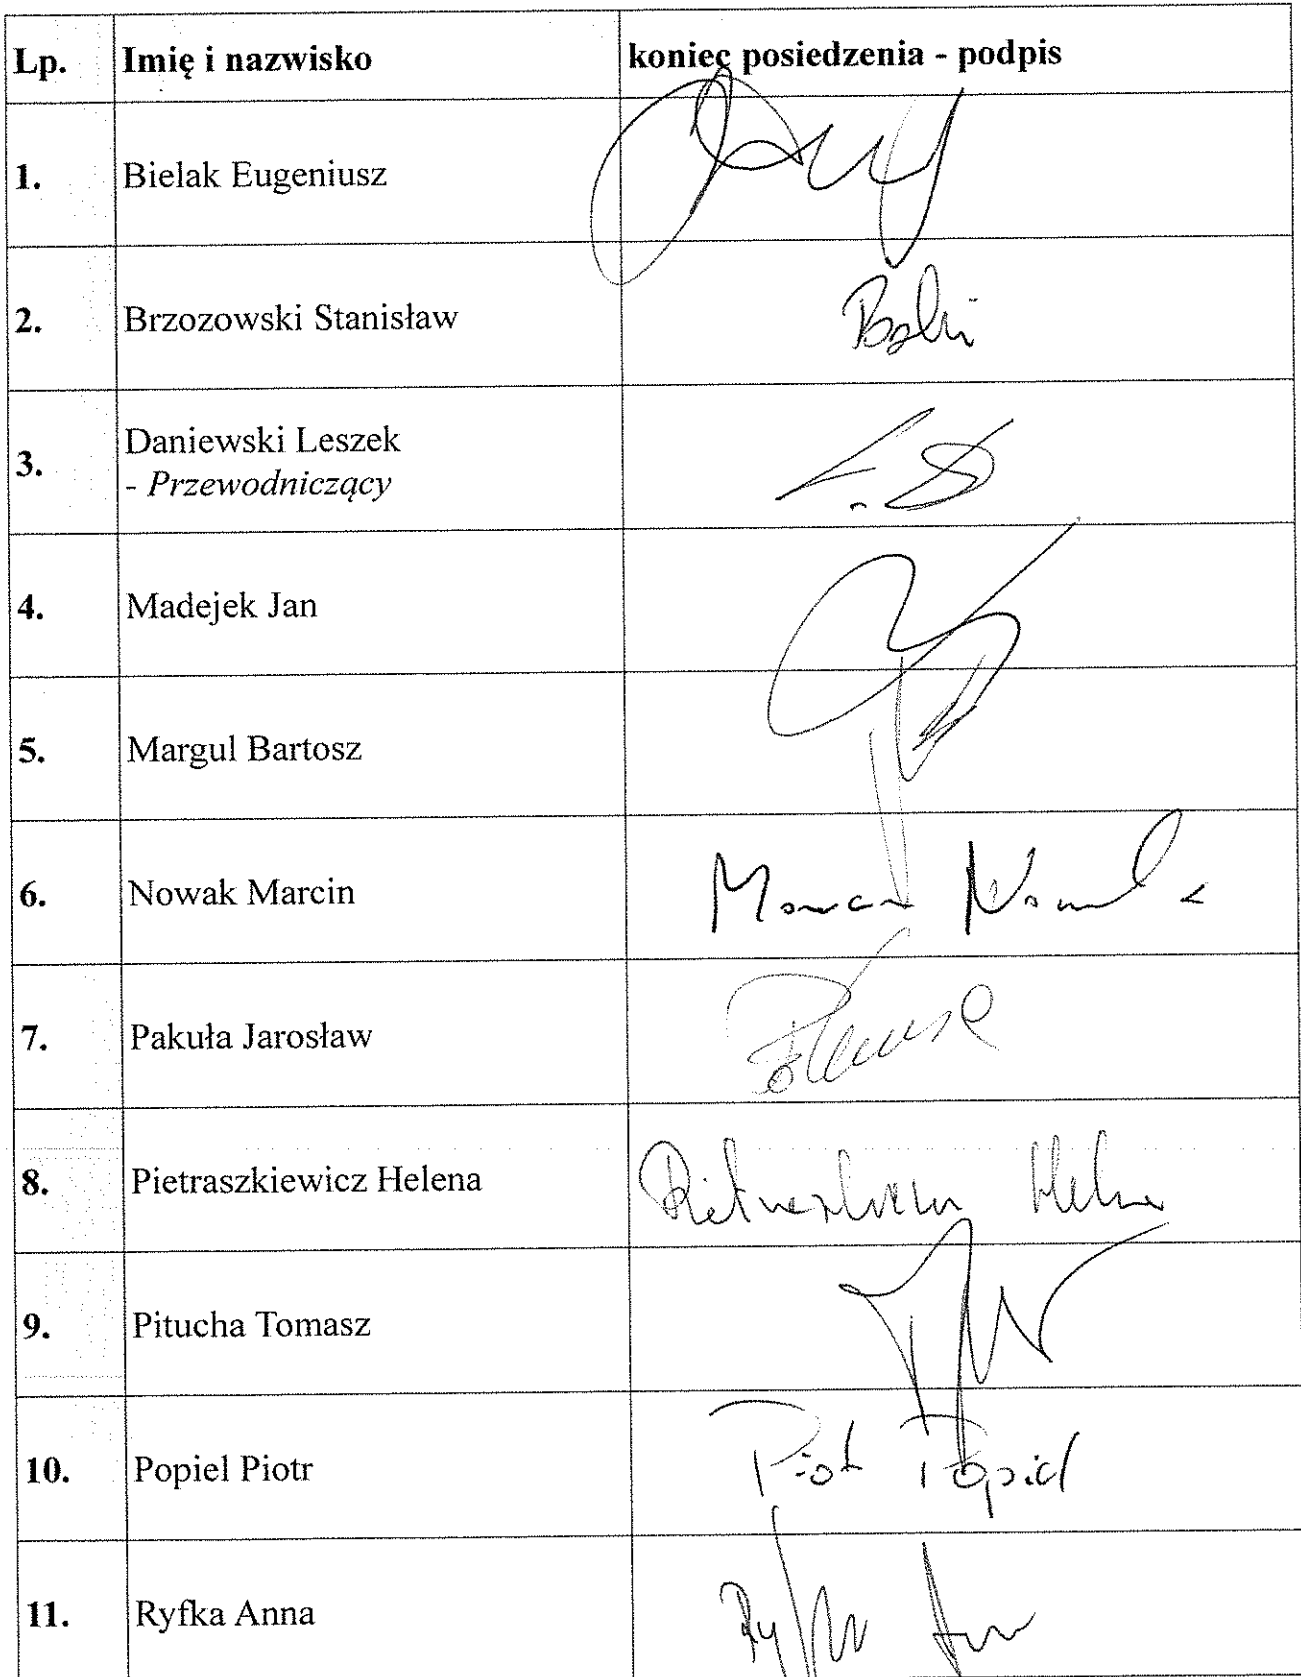 Lp. Imię i nazwisko koniec posiedzenia - podpis
1. Bielak Eugeniusz
2. Brzozowski Stanisław
3. Daniewski Leszek
- Przewodniczący
4. Madejek Jan
5. Margul Bartosz
6. Nowak Marcin Marcin Nowak
7. Pakuła Jarosław
8. Pietraszkiewicz Helena Pietraszkiewicz Helena
9. Pitucha Tomasz
10. Popiel Piotr Piotr Popiel
11. Ryfka Anna Ryfka Anna